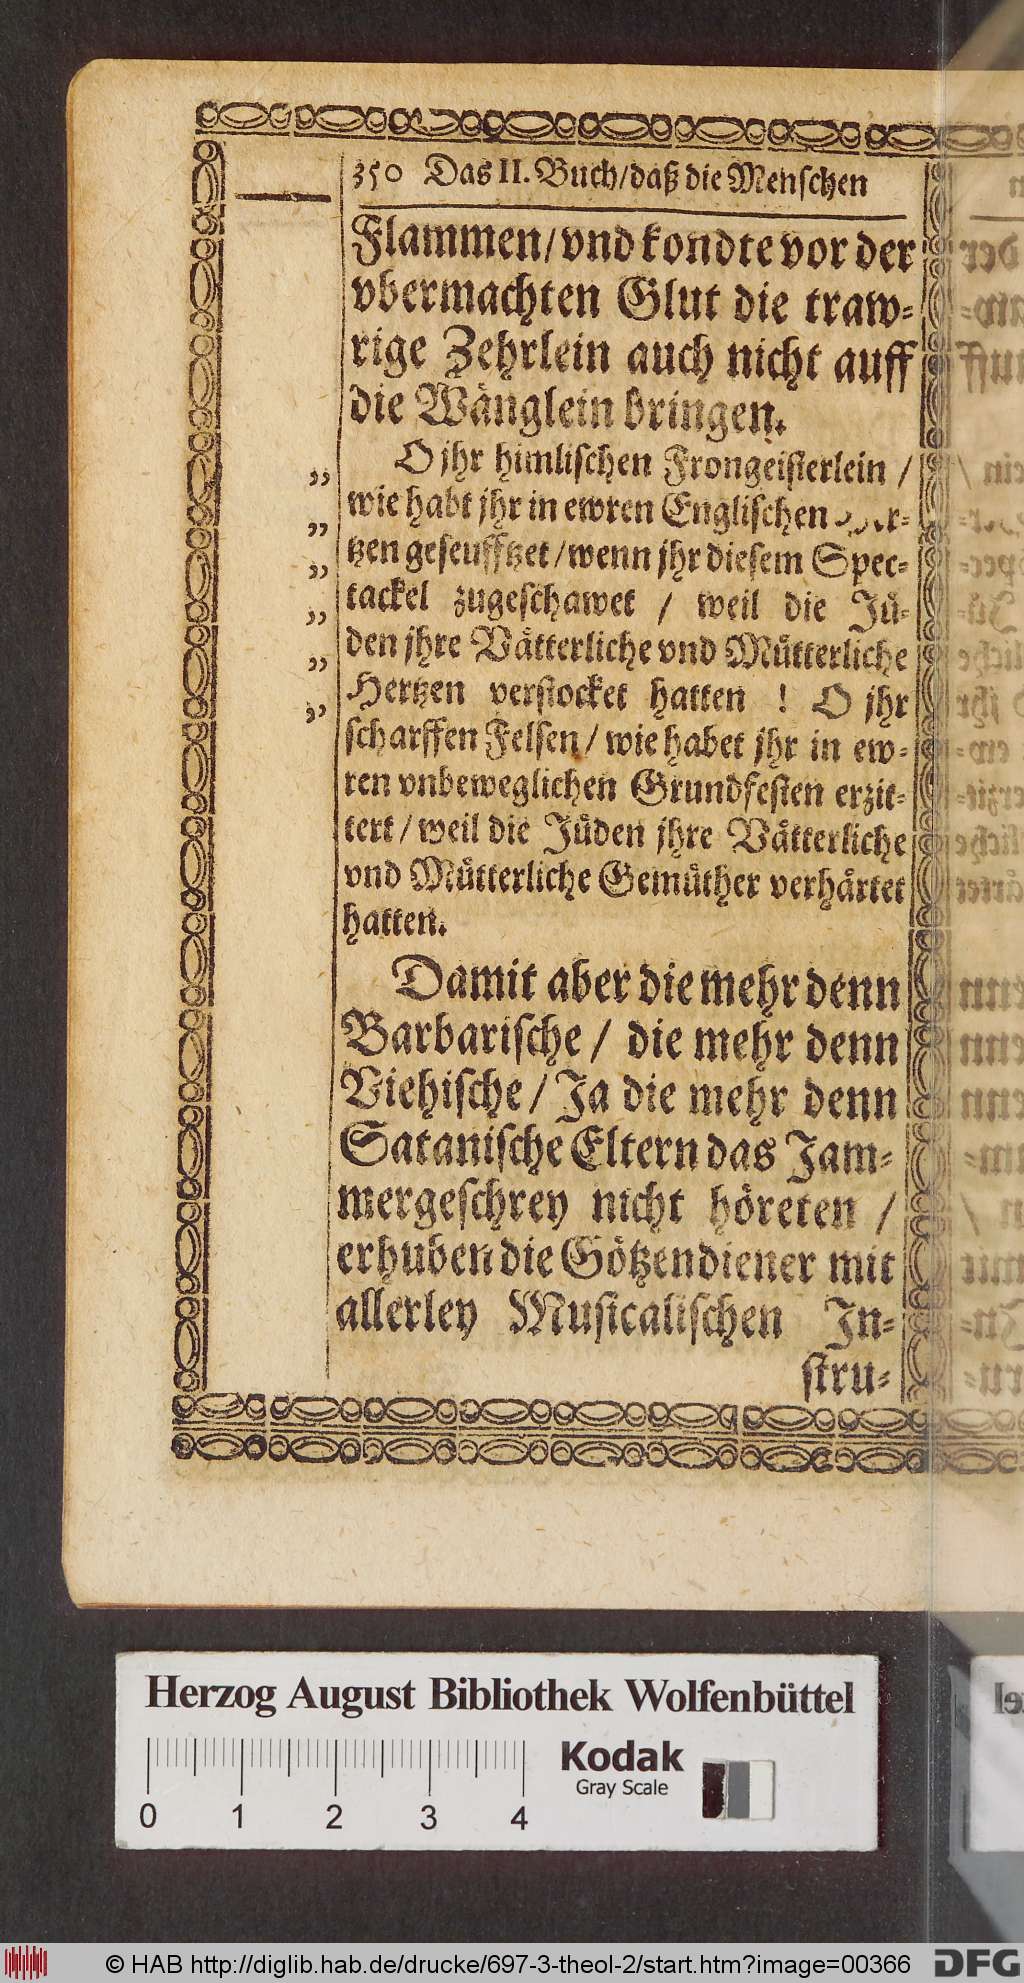 350 Das II. Buch/daß die Menschen
Flammen/vnd kondte vor der
vbermachten Glut die traw-
rige Zehrlein auch nicht auff
die Wänglein bringen.
O jhr himlischen Frongeisterlein /
wie habt jhr in ewren Englischen
tzen geseufftzet/wenn jhr diesem Spec-
tackel zugeschawet / weil die Jü-
den jhre Vätterliche vnd Mütterliche
Hertzen verstocket hatten ! O jhr
scharffen Felsen/ wie habet jhr in ew-
ren vnbeweglichen Grundfesten erzit-
tert/ weil die Jüden jhre Vätterliche
vnd Mütterliche Gemüther verhärtet
hatten.
Damit aber die mehr denn
Barbarische / die mehr denn
Viehische/ Ja die mehr denn
Satanische Eltern das Jam-
mergeschrey nicht höreten /
erhuben die Götzendiener mit
allerley Musicalischen In-
stru-
Herzog August Bibliothek Wolfenbüttel
Kodak
Gray Scale
0 1 2 3 4
© HAB http://diglib.hab.de/drucke/697-3-theol-2/start.htm?image=00366
DFG